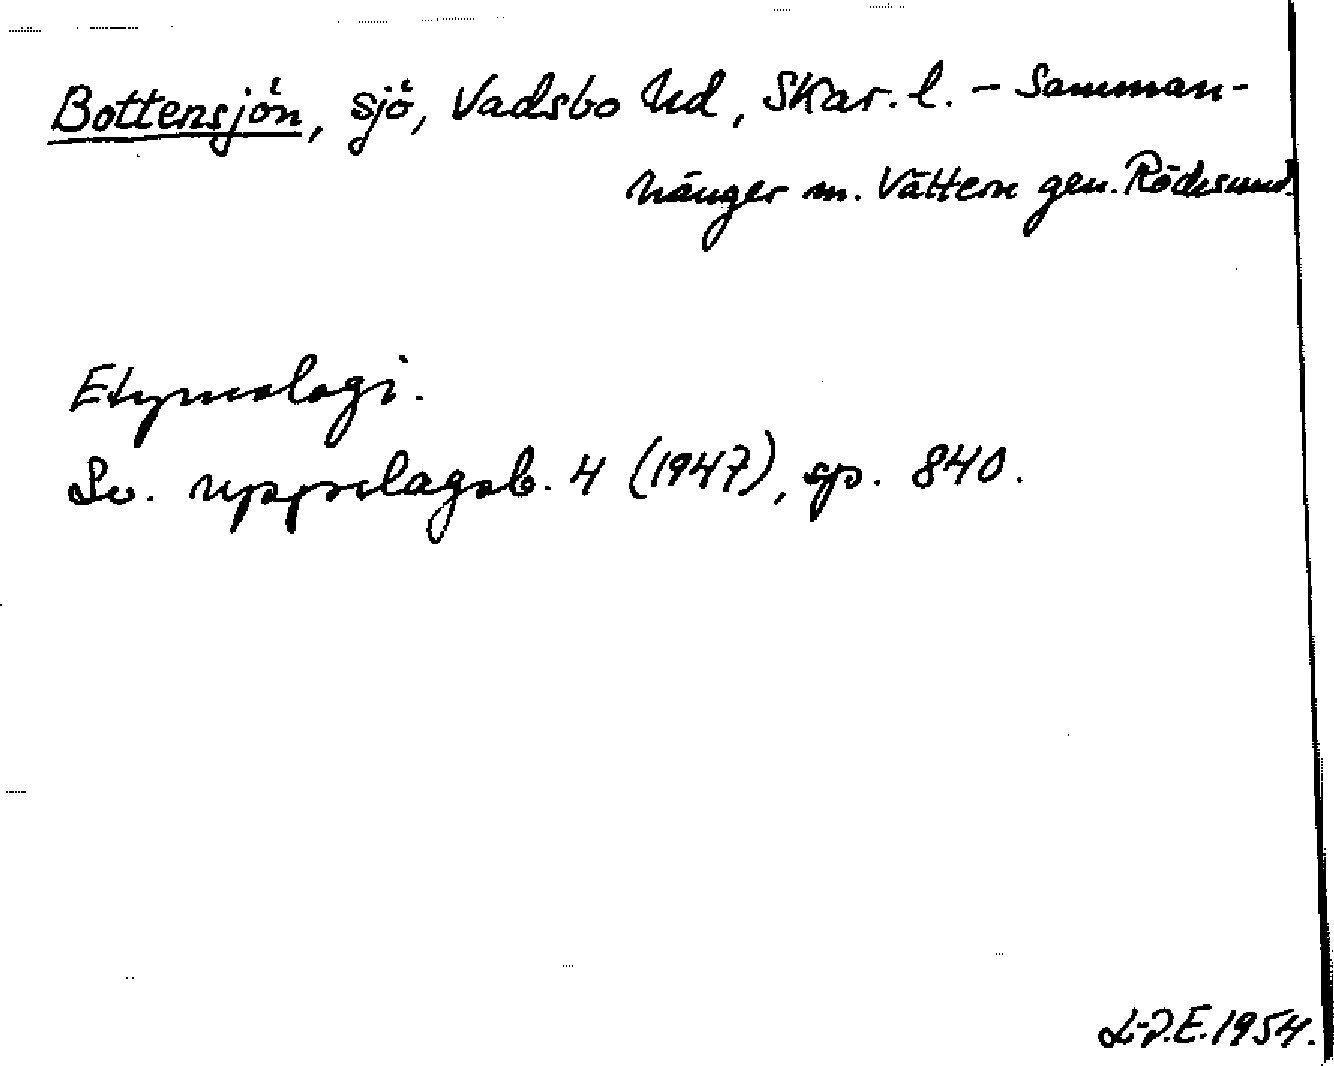 Bottensjön, sjö, Vadsbo hd, Skar. l. – Samman-
hänger m. Vättern gen. Rödesund.
Etymologi.
Sv. uppslagsb. 4 (1947), sp. 840.
L-J.E. 1954.